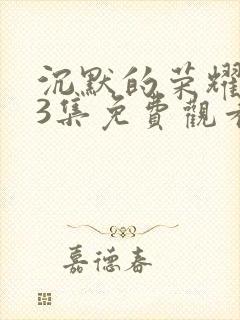 沉默的荣耀
3集免費觀看
嘉德春